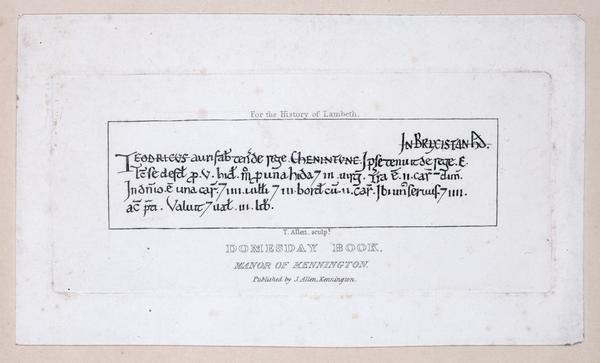 For the History of Lambeth.
IN BRIXISTAN HD.
TEODRICUS aurifab͛ ten͛ de rege CHENINTUNE. Ipse tenuit de rege .E.
T́c se defd̄ ꝓ .v. hid̄. m̊ ꝓ una hida ⁊ iii. virg̃. T͛ra .ē. ii. car̃ ⁊ dim̃.
In dñio .ē una car̃. ⁊ iiii. uilłi ⁊ iii. bord̄ cū .ii. car̃. Ibi un̉ seruus. ⁊ iiii.
ac̃ p͛ti. Valuit ⁊ ual̃ .iii. lib̃.
T. Allen, sculpt.
DOMESDAY BOOK,
MANOR OF KENNINGTON.
Published by J. Allen, Kennington.